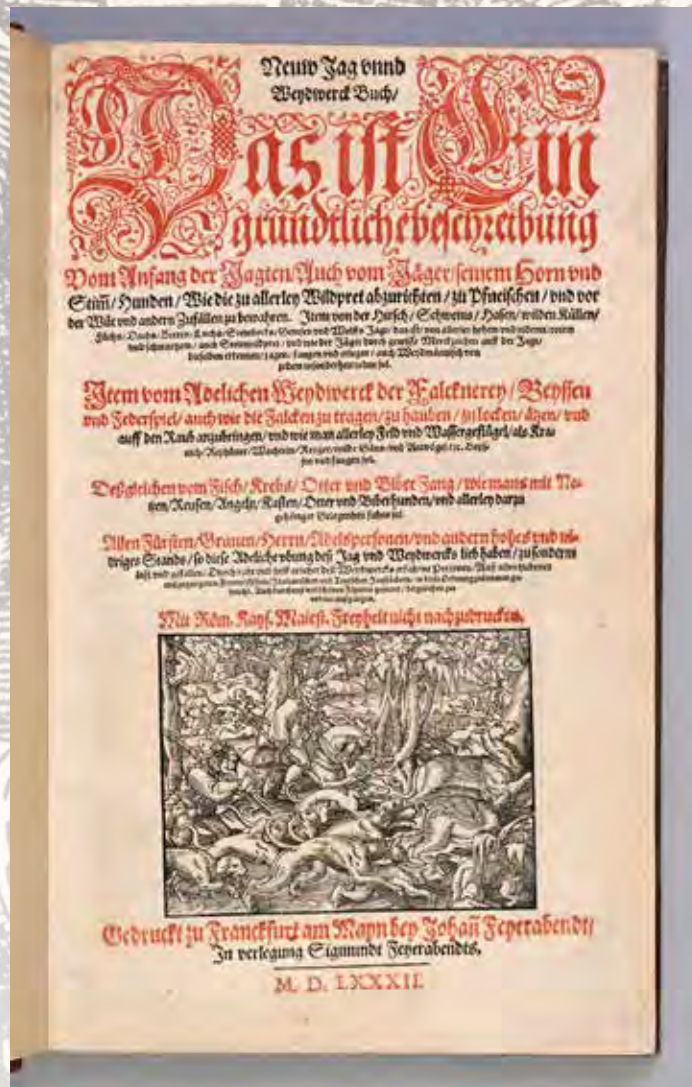 Neuw Jag vnnd
Weydwerck Buch/
Das ist Ein
grundtliche beschreibung
Vom Anfang der Jagten/Auch vom Jäger/seinem Horn vnd
Stim̃/Hunden/Wie die zu allerley Wildpret abzurichten/zu Pfneischen/vnd vor
der Wüt vnd andern Zufällen zu bewahren. Item von der Hirsch/Schweins/Hasen/wilden Küllen/
vnd schwartzen/auch vnd wie der Jäger durch gewisse Merckzeichen auff der Jagt/
dieselben erkennen/jagen/fangen vnd erlegen/auch Weydmännisch von
jedem reden sol.
Item vom Adelichen Weydwerck der Falcknerey/Beyssen
vnd Federspiel/auch wie die Falcken zu tragen/zu hauben/zu locken/ätzen/vnd
auff den Raub anzubringen/vnd wie man allerley Feld vnd Wassergeflügel/als Kra-
nich/Rephüner/Wachteln/Reyger/wilde Gäns vnd Antvögel/rc. Beys-
sen vnd fangen sol.
Deßgleichen vom Fisch/Krebs/Otter vnd Biber Fang/wie mans mit Ne-
tzen/Reusen/Angeln/Kasten/Otter vnd Biberhunden/vnd allerley darzu
gehöriger Gelegenheit suchen sol.
Allen Fürsten/Grauen/Herrn/Adelspersonen/vnd andern hohes vnd ni-
driges Stands/so diese Adeliche vbung deß Jag vnd Weydwercks lieb haben/zu sonderm
lust vnd gefallen/
Mit Röm. Kays. Maiest. Freyheit nicht nachzudrucken.
Gedruckt zu Franckfurt am Mayn bey Johañ Feyerabendt/
In verlegung Sigmundt Feyerabendts.
M. D. LXXXII.